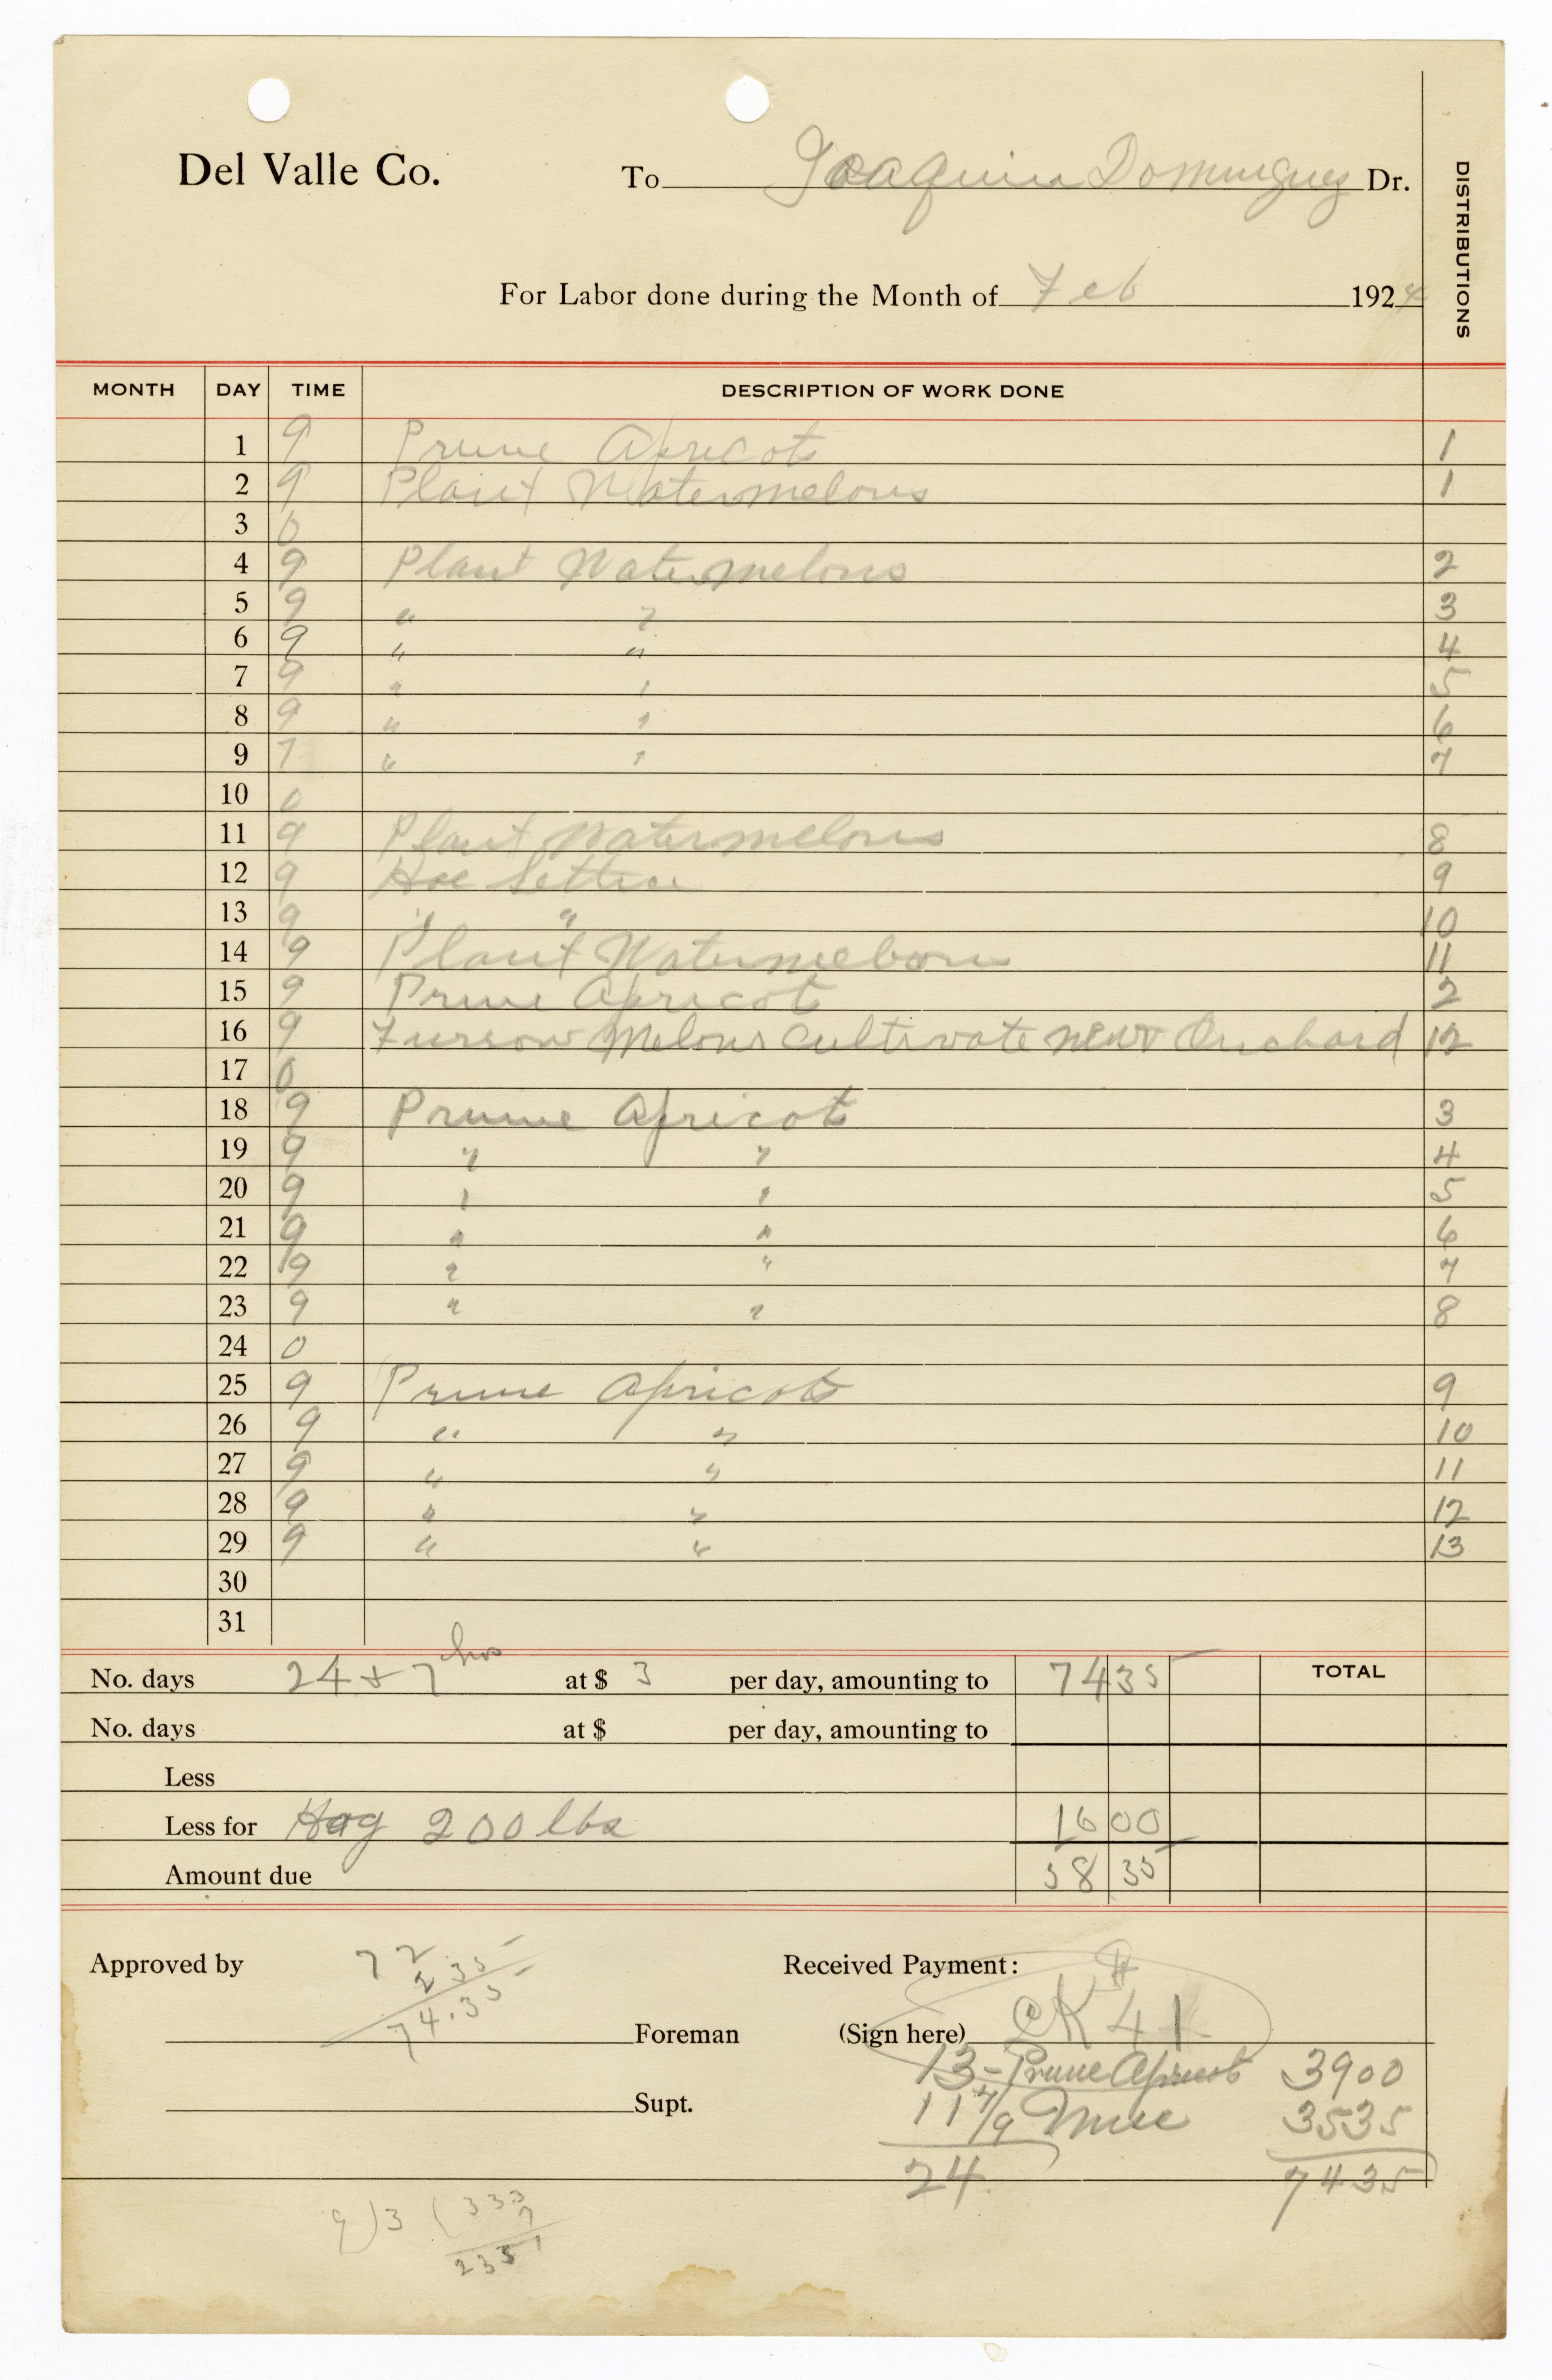 Del Valle Co. To Joaquin Dominguez Dr.
DISTRIBUTIONS
For Labor done during the Month of Feb 1924
MONTH DAY TIME DESCRIPTION OF WORK DONE
1 9 Prune Apricots 1
2 9 Plant Watermelons 1
3 0
4 9 Plant Watermelons 2
5 9 " " 3
6 9 " " 4
7 9 " " 5
8 9 " " 6
9 7 " " 7
10 0
11 9 Plant Watermelons 8
12 9 Hoe Lettuce 9
13 9 " " 10
14 9 Plant Watermelons 11
15 9 Prune Apricots 2
16 9 Furrow Melons Cultivate new Orchard 12
17 0
18 9 Prune Apricots 3
19 9 " " 4
20 9 " " 5
21 9 " " 6
22 9 " " 7
23 9 " " 8
24 0
25 9 Prune Apricots 9
26 9 " " 10
27 9 " " 11
28 9 " " 12
29 9 " " 13
30
31
No. days 24 + 7 hrs at $ 3 per day, amounting to 74 35 TOTAL
No. days at $ per day, amounting to
Less
Less for Hog 200 lbs 16 00
Amount due 58 35
Approved by 72 Received Payment:
2 35
74.35
Foreman (Sign here) CK # 41
13 - Prune Apricots 3900
Supt. 11 7/9 Misc 3535
24 7435
9)3(333
7
2331